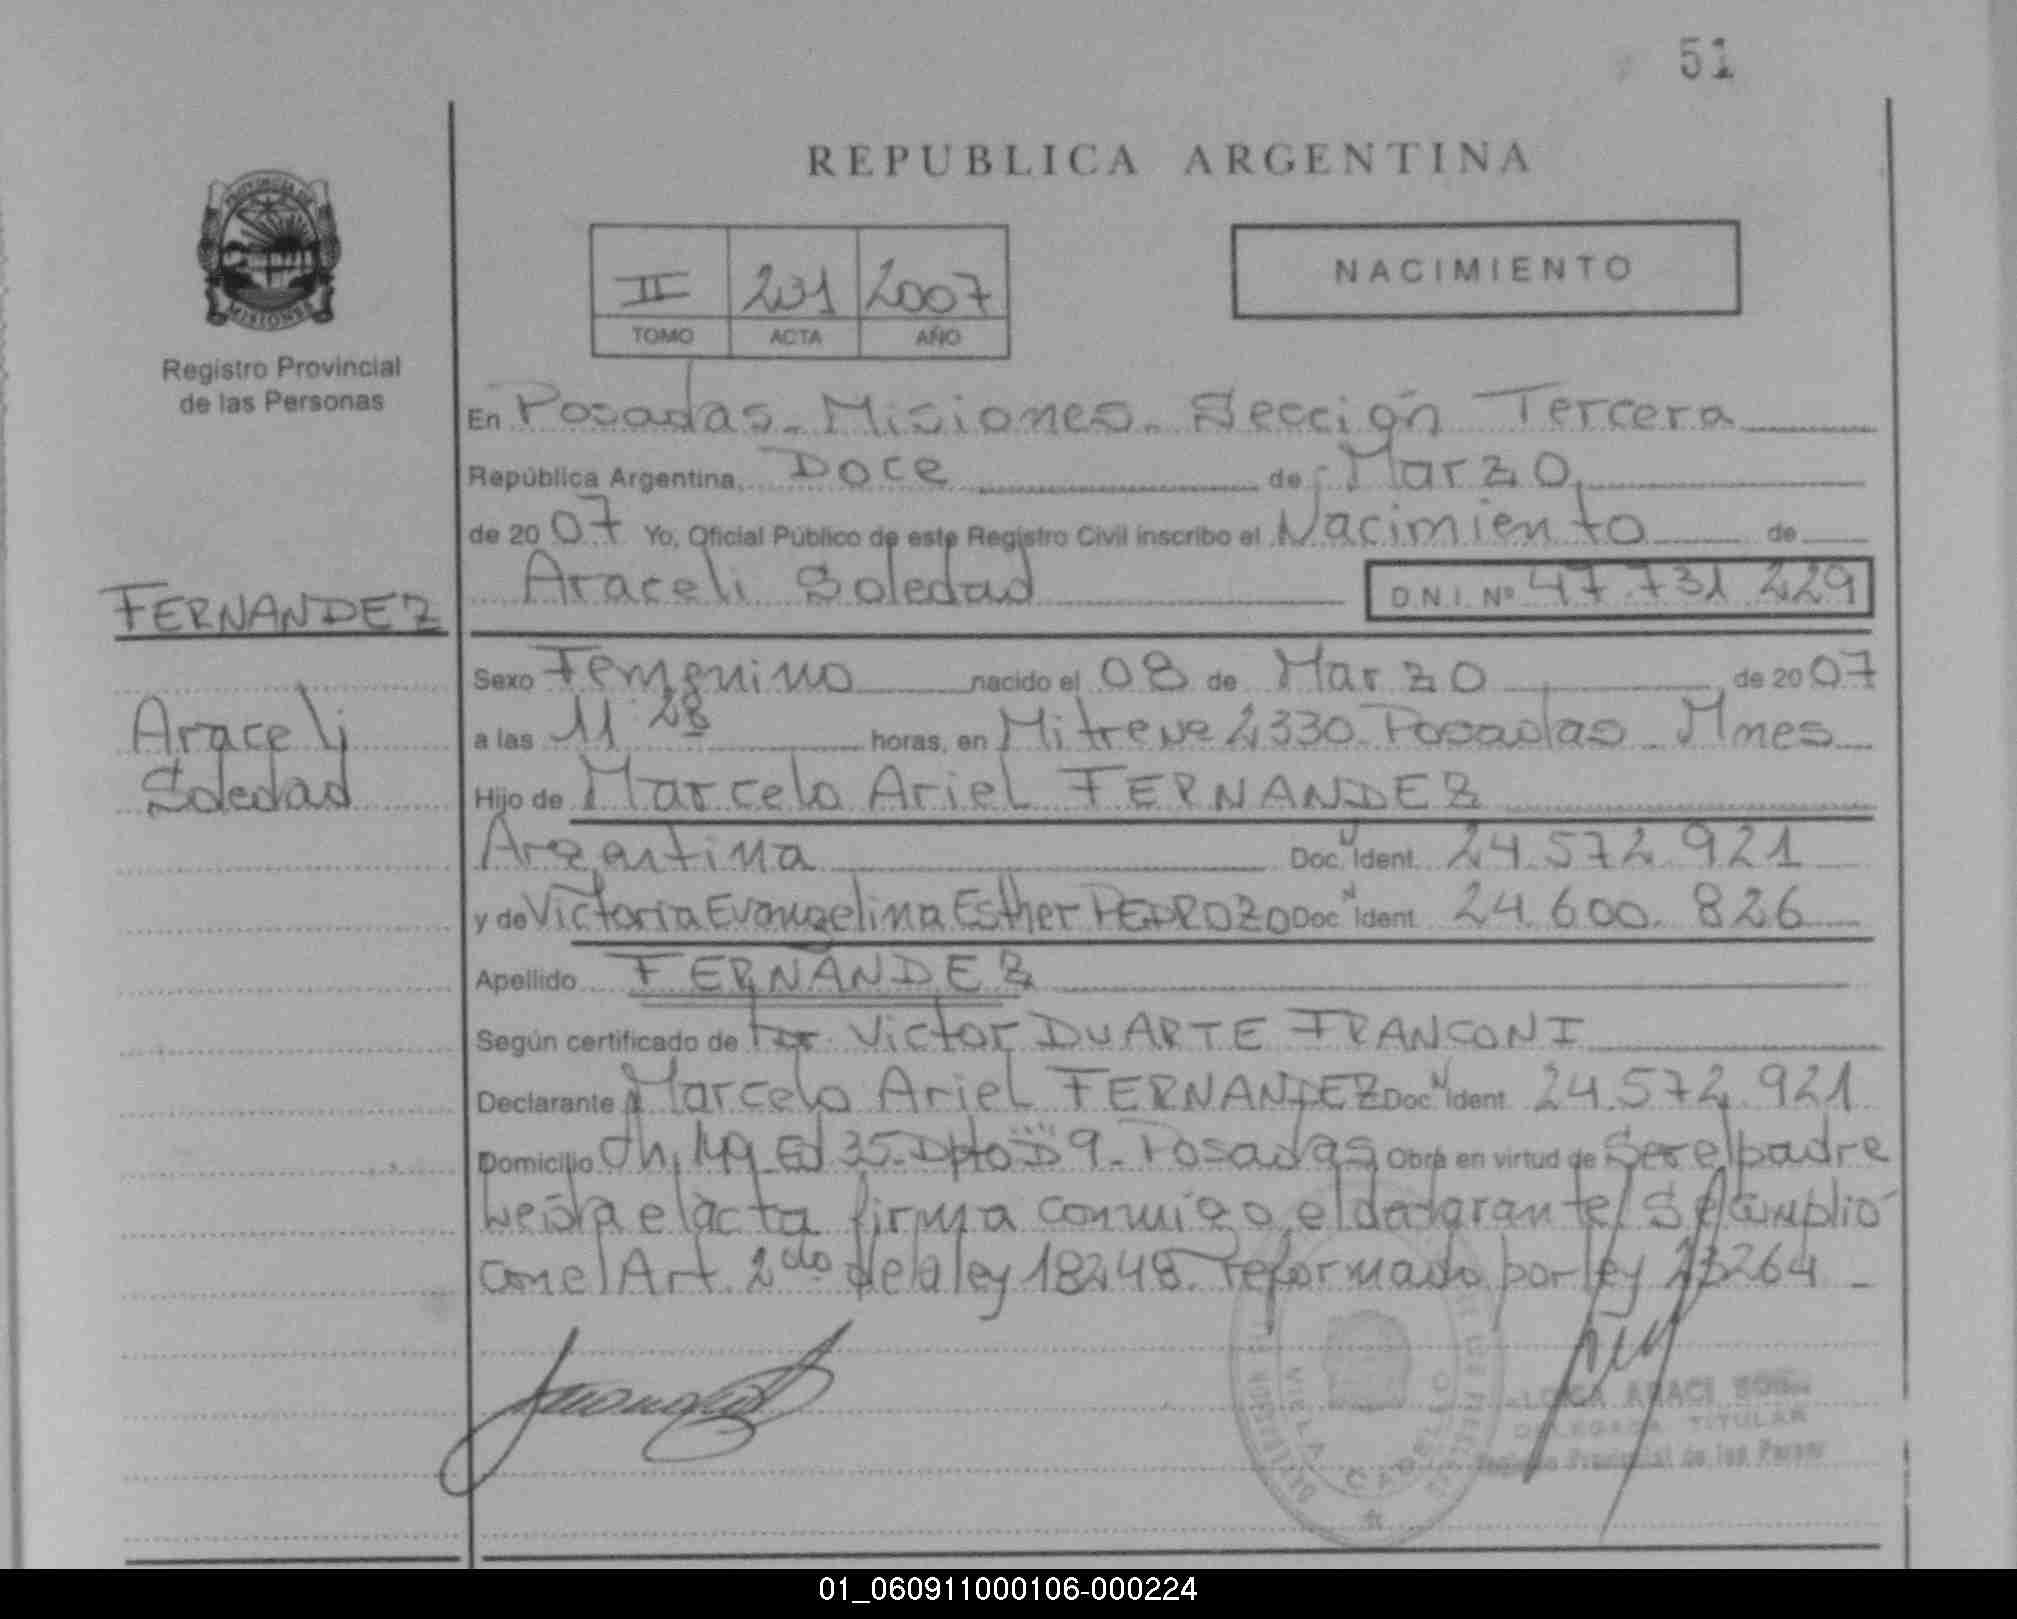 51
REPUBLICA ARGENTINA
PROVINCIA DE
MISIONES
Registro Provincial
de las Personas
II 231 2007
TOMO ACTA AÑO
NACIMIENTO
En Posadas - Misiones - Sección Tercera
República Argentina, Doce de Marzo
de 2007 Yo, Oficial Público de este Registro Civil inscribo el Nacimiento de
Araceli Soledad D.N.I. Nº 47.731 229
FERNANDEZ
Araceli
Soledad
Sexo Femenino nacido el 08 de Marzo de 2007
a las 11 28 horas, en Mitre Nº 2330 - Posadas - Mnes
Hijo de Marcelo Ariel FERNANDEZ
Argentina Doc. Ident. 24.572.921
y de Victoria Evangelina Esther PEDROZO Doc. Ident. 24.600.826
Apellido FERNANDEZ
Según certificado de Dr. Victor DUARTE FRANCONI
Declarante Marcelo Ariel FERNANDEZ Doc. Ident. 24.572.921
Domicilio Ch. 149 Ed 35 - Dpto "D" 9 - Posadas Obra en virtud de Ser el padre
Leída el acta firma conmigo el declarante Se Cumplió
con el Art. 2do de la ley 18248 - reformado por ley 23264 -
VILLA CABELLO
DELEGADA TITULAR
Registro Provincial de las Person
01_060911000106-000224